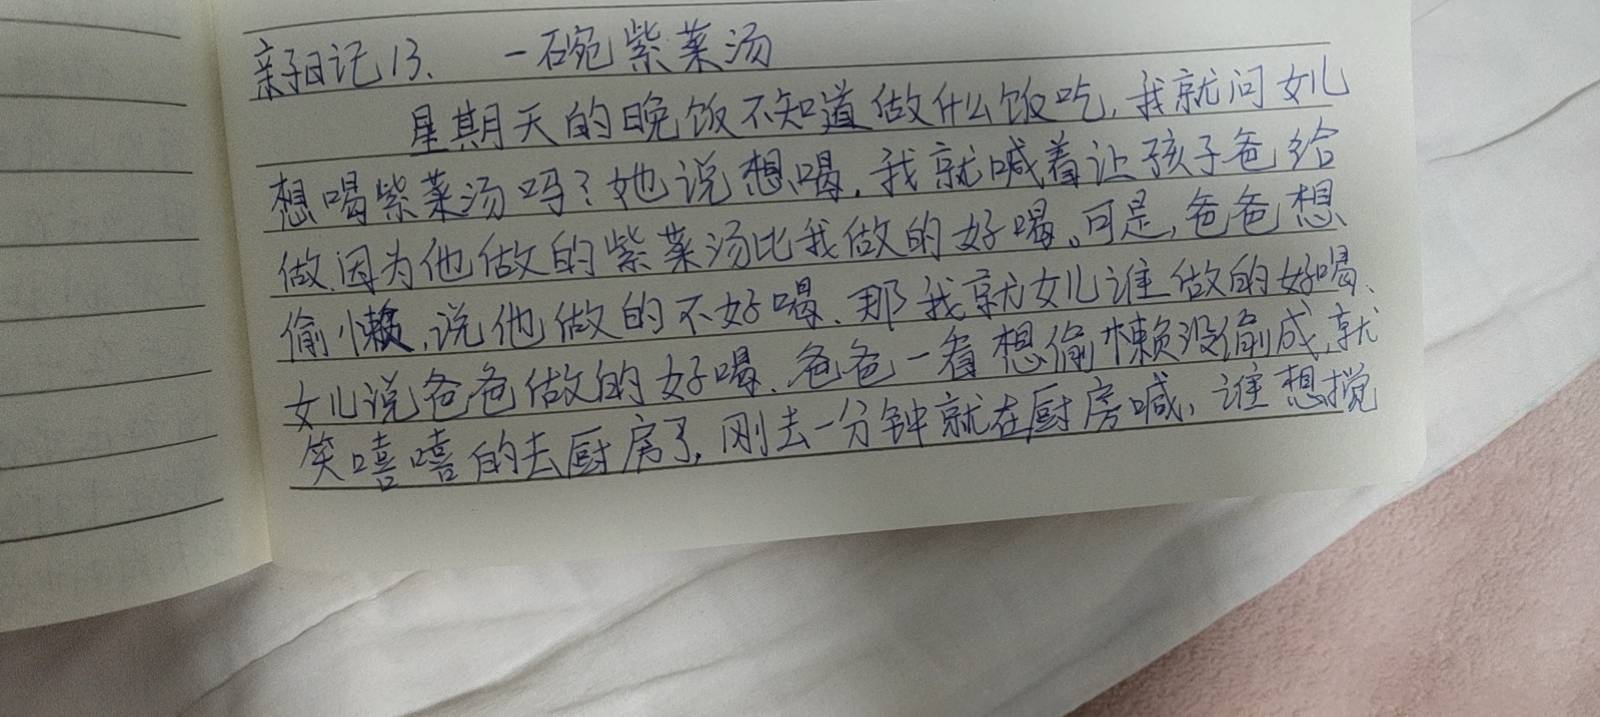 亲子日记13、 一碗紫菜汤
星期天的晚饭不知道做什么饭吃，我就问女儿
想喝紫菜汤吗？她说想喝，我就喊着让孩子爸给
做，因为他做的紫菜汤比我做的好喝。可是，爸爸想
偷懒，说他做的不好喝、那我就女儿谁做的好喝、
女儿说爸爸做的好喝、爸爸一看想偷懒没偷成，就
笑嘻嘻的去厨房了，刚去一分钟就在厨房喊，谁想搅